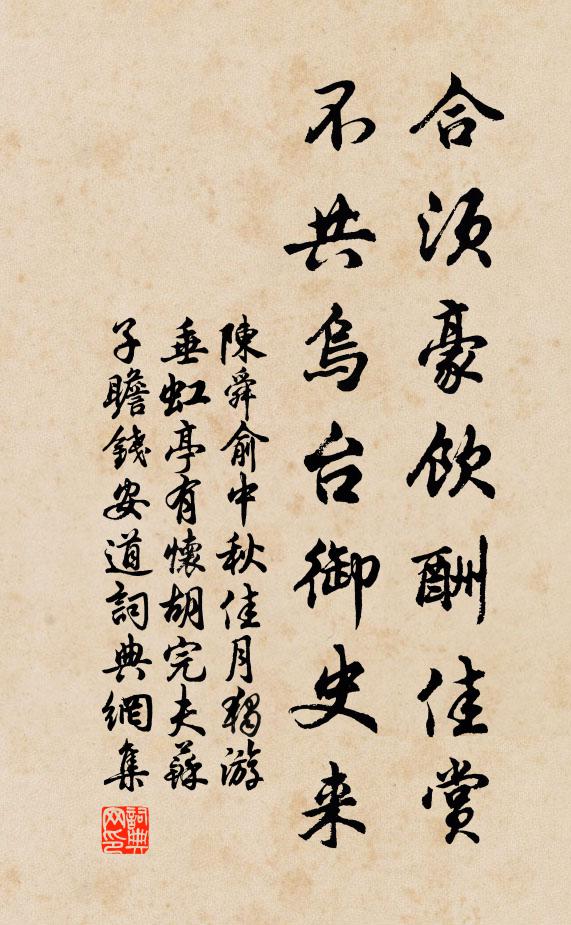 合须豪饮酬佳赏
不共乌台御史来
陳舜俞中秋佳月獨游
垂虹亭有懷胡完夫蘇
子瞻錢安道詞典網集
詞典网印